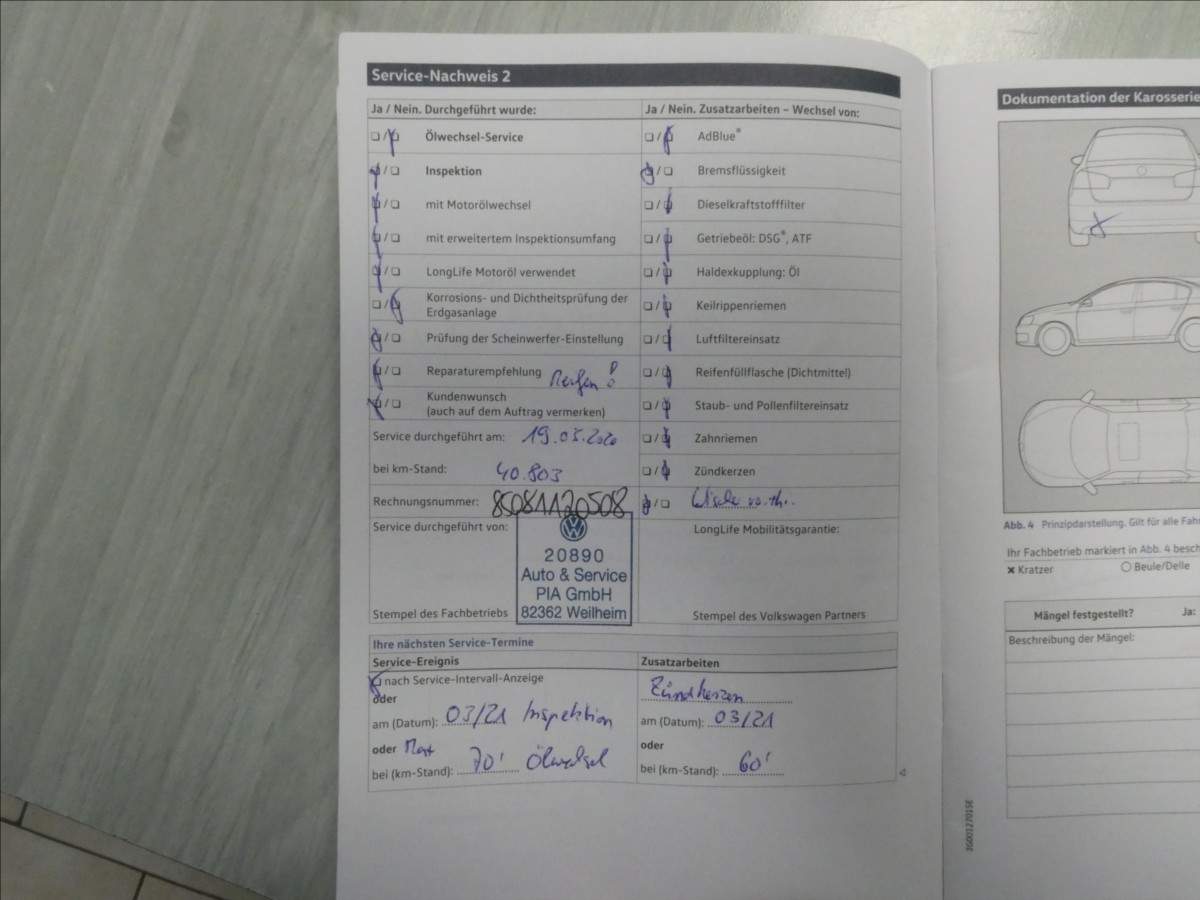 Service-Nachweis 2
Ja / Nein. Durchgeführt wurde:
Ölwechsel-Service
Inspektion
mit Motorölwechsel
mit erweitertem Inspektionsumfang
LongLife Motoröl verwendet
Korrosions- und Dichtheitsprüfung der
Erdgasanlage
Prüfung der Scheinwerfer-Einstellung
Reparaturempfehlung Reifen!
Kundenwunsch
(auch auf dem Auftrag vermerken)
Service durchgeführt am: 19.05.2020
bei km-Stand: 40.803
Rechnungsnummer: 85081120508
Service durchgeführt von:
20890
Auto & Service
PIA GmbH
82362 Weilheim
Stempel des Fachbetriebs
Ja / Nein. Zusatzarbeiten – Wechsel von:
AdBlue®
Bremsflüssigkeit
Dieselkraftstofffilter
Getriebeöl: DSG®, ATF
Haldexkupplung: Öl
Keilrippenriemen
Luftfiltereinsatz
Reifenfüllflasche (Dichtmittel)
Staub- und Pollenfiltereinsatz
Zahnriemen
Zündkerzen
LongLife Mobilitätsgarantie:
Stempel des Volkswagen Partners
Ihre nächsten Service-Termine
Service-Ereignis
nach Service-Intervall-Anzeige
oder
am (Datum): 03/21 Inspektion
oder
bei (km-Stand): 70' Ölwechsel
Zusatzarbeiten
Zündkerzen
am (Datum): 03/21
oder
bei (km-Stand): 60'
Dokumentation der Karosserie
Abb. 4 Prinzipdarstellung. Gilt für alle Fahr
Ihr Fachbetrieb markiert in Abb. 4 besch
× Kratzer
Beule/Delle
Mängel festgestellt? Ja:
Beschreibung der Mängel:
3G0012701SE